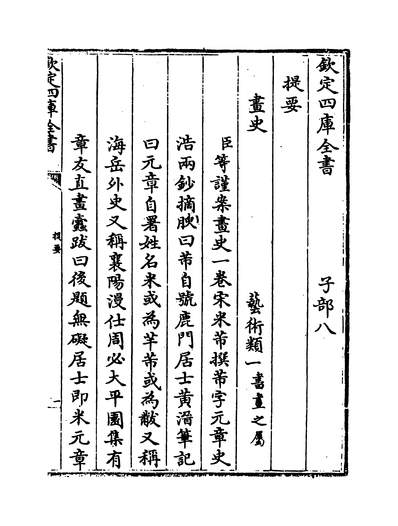 欽定四庫全書 子部八
提要 藝術類一書畫之屬
畫史
臣等謹案畫史一卷宋米芾撰芾字元章史
浩兩鈔摘腴曰芾自號鹿門居士黃溍筆記
曰元章自署姓名米或為羋芾或為黻又稱
海岳外史又稱襄陽漫仕周必大平園集有
章友直畫蠧跋曰後題無礙居士即米元章
欽定四庫全書
提要
一